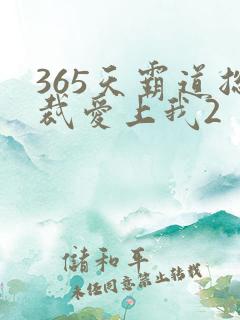 365天霸道总
裁爱上我2
储和平
未经同意禁止转载